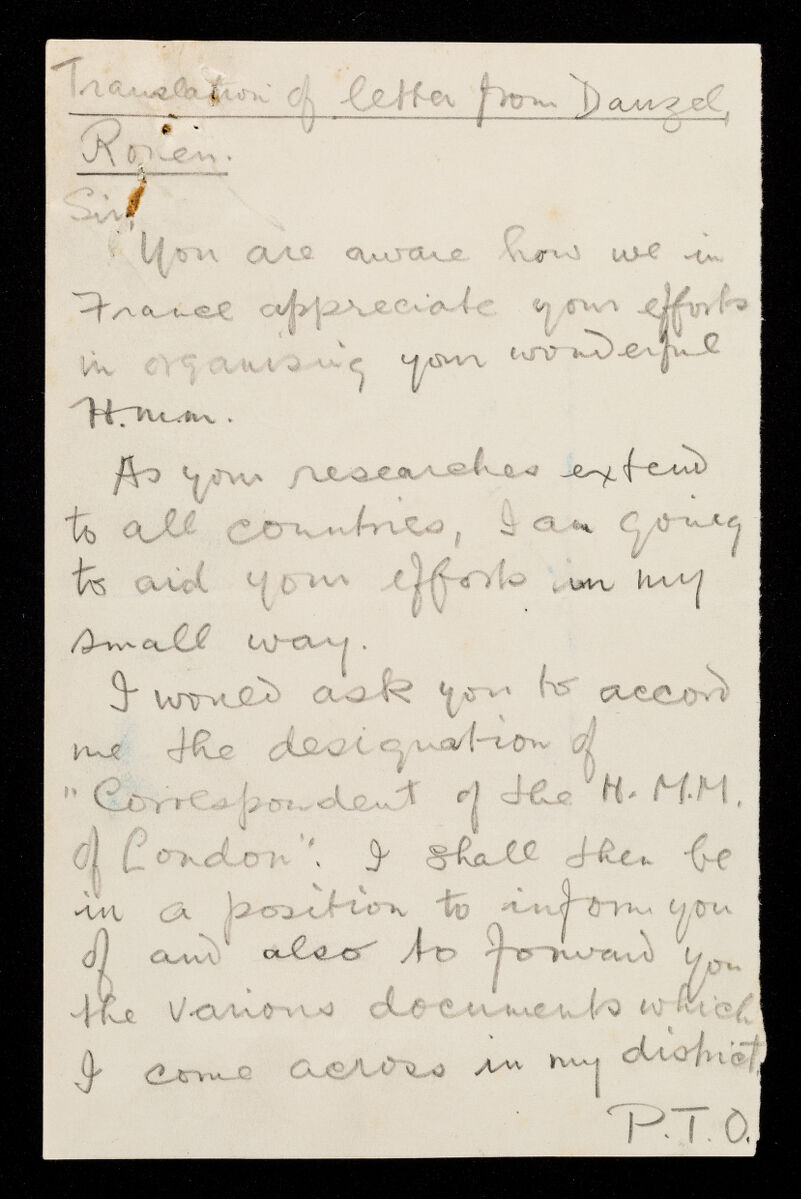 Translation of letter from Dauzel,
Rouen.
Sir,
You are aware how we in
France appreciate your efforts
in organising your wonderful
H.m.m.
As your researches extend
to all countries, I am going
to aid your efforts in my
small way.
I would ask you to accord
me the designation of
"Correspondent of the H. M.M.
of London". I shall then be
in a position to inform you
of and also to forward you
the various documents which
I come across in my district.
P.T.O.